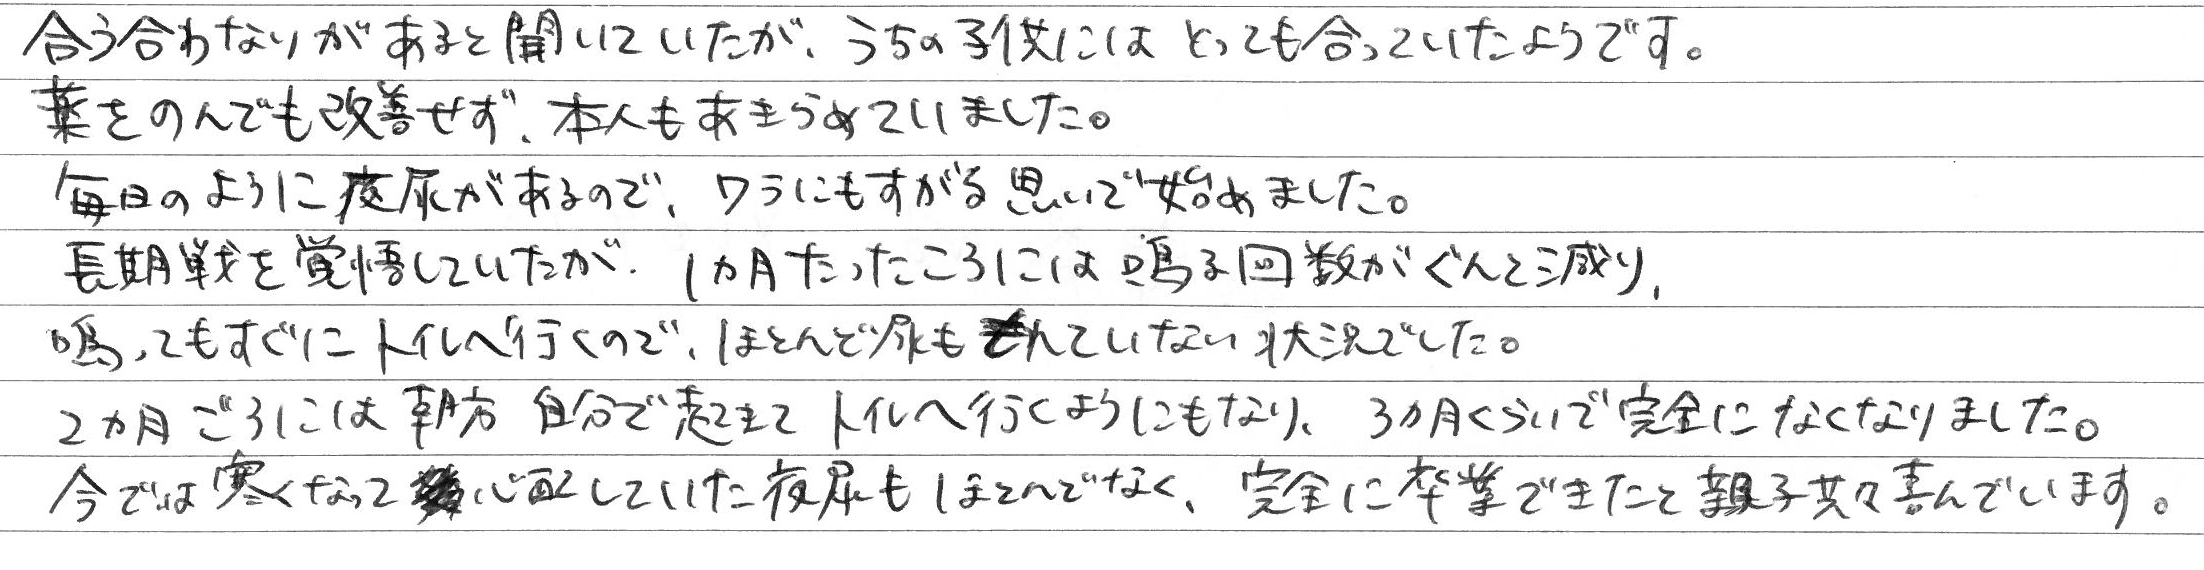 合う合わないがあると聞いていたが、うちの子供にはとっても合っていたようです。
薬をのんでも改善せず、本人もあきらめていました。
毎日のように夜尿があるので、ワラにもすがる思いで始めました。
長期戦を覚悟していたが、1カ月たったころには鳴る回数がぐんと減り、
鳴ってもすぐにトイレへ行くので、ほとんど尿もれていない状況でした。
2カ月ごろには朝方自分で起きてトイレへ行くようにもなり、3カ月くらいで完全になくなりました。
今では寒くなって心配していた夜尿もほとんどなく、完全に卒業できたと親子共々喜んでいます。